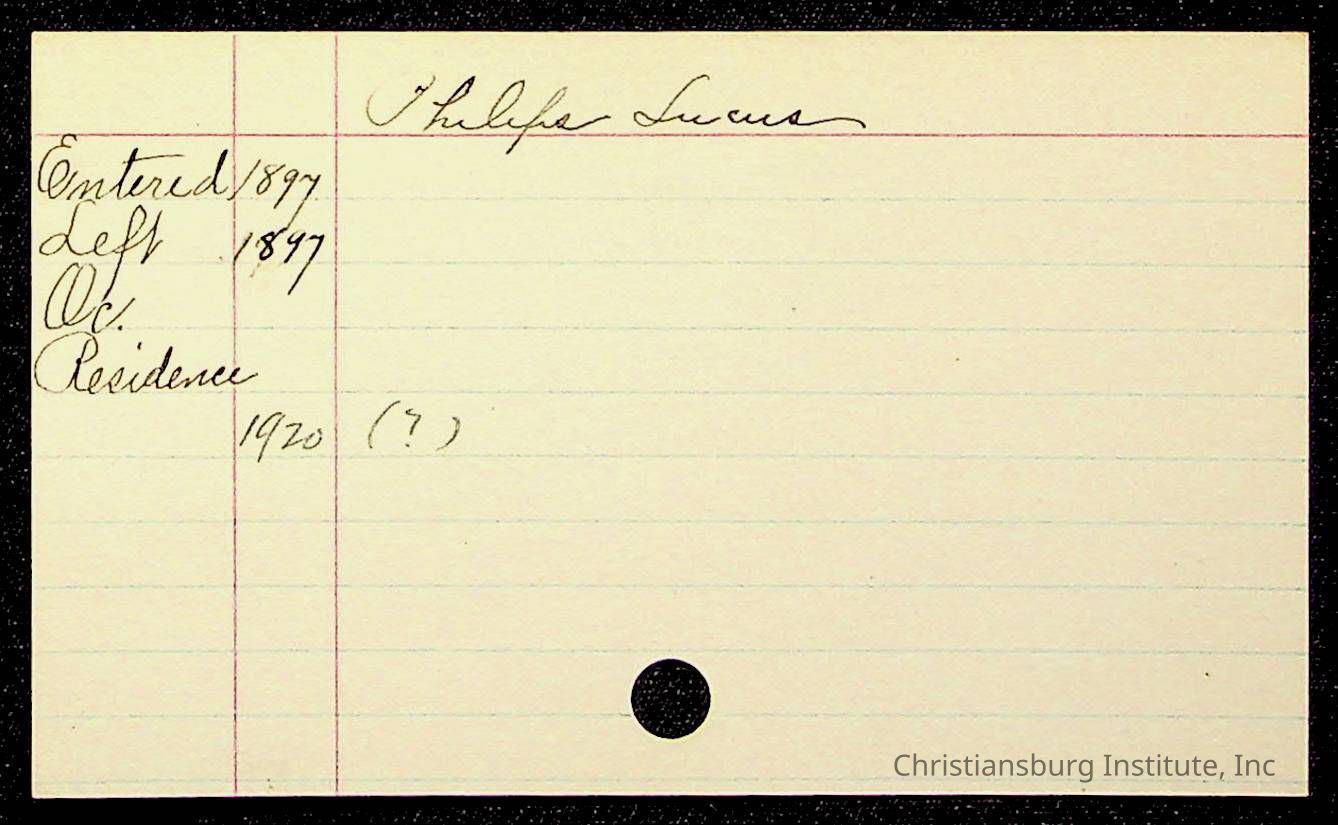 Philips Lucus
Entered 1897
Left 1897
Oc.
Residence
1920 (?)
Christiansburg Institute, Inc